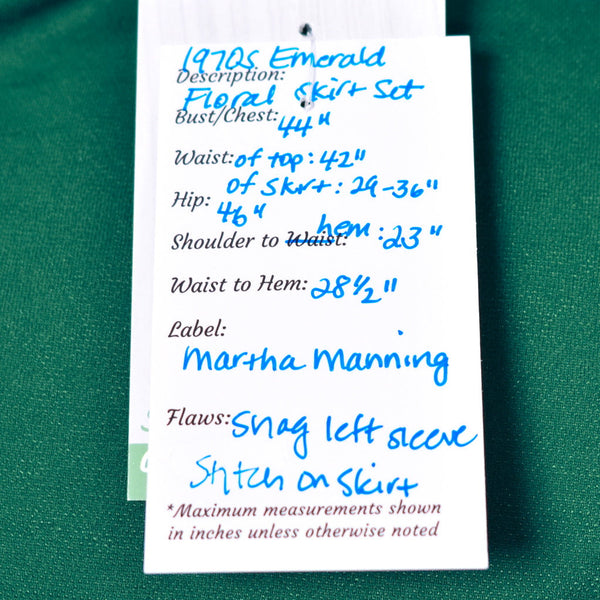 1970s Emerald
Description:
Floral Skirt Set
Bust/Chest: 44"
Waist: of top: 42"
of skirt: 29-36"
Hip: 46"
hem: 23"
Shoulder to Waist:
Waist to Hem: 28 1/2"
Label:
Martha Manning
Flaws: Snag left sleeve
Stitch on skirt
*Maximum measurements shown
in inches unless otherwise noted